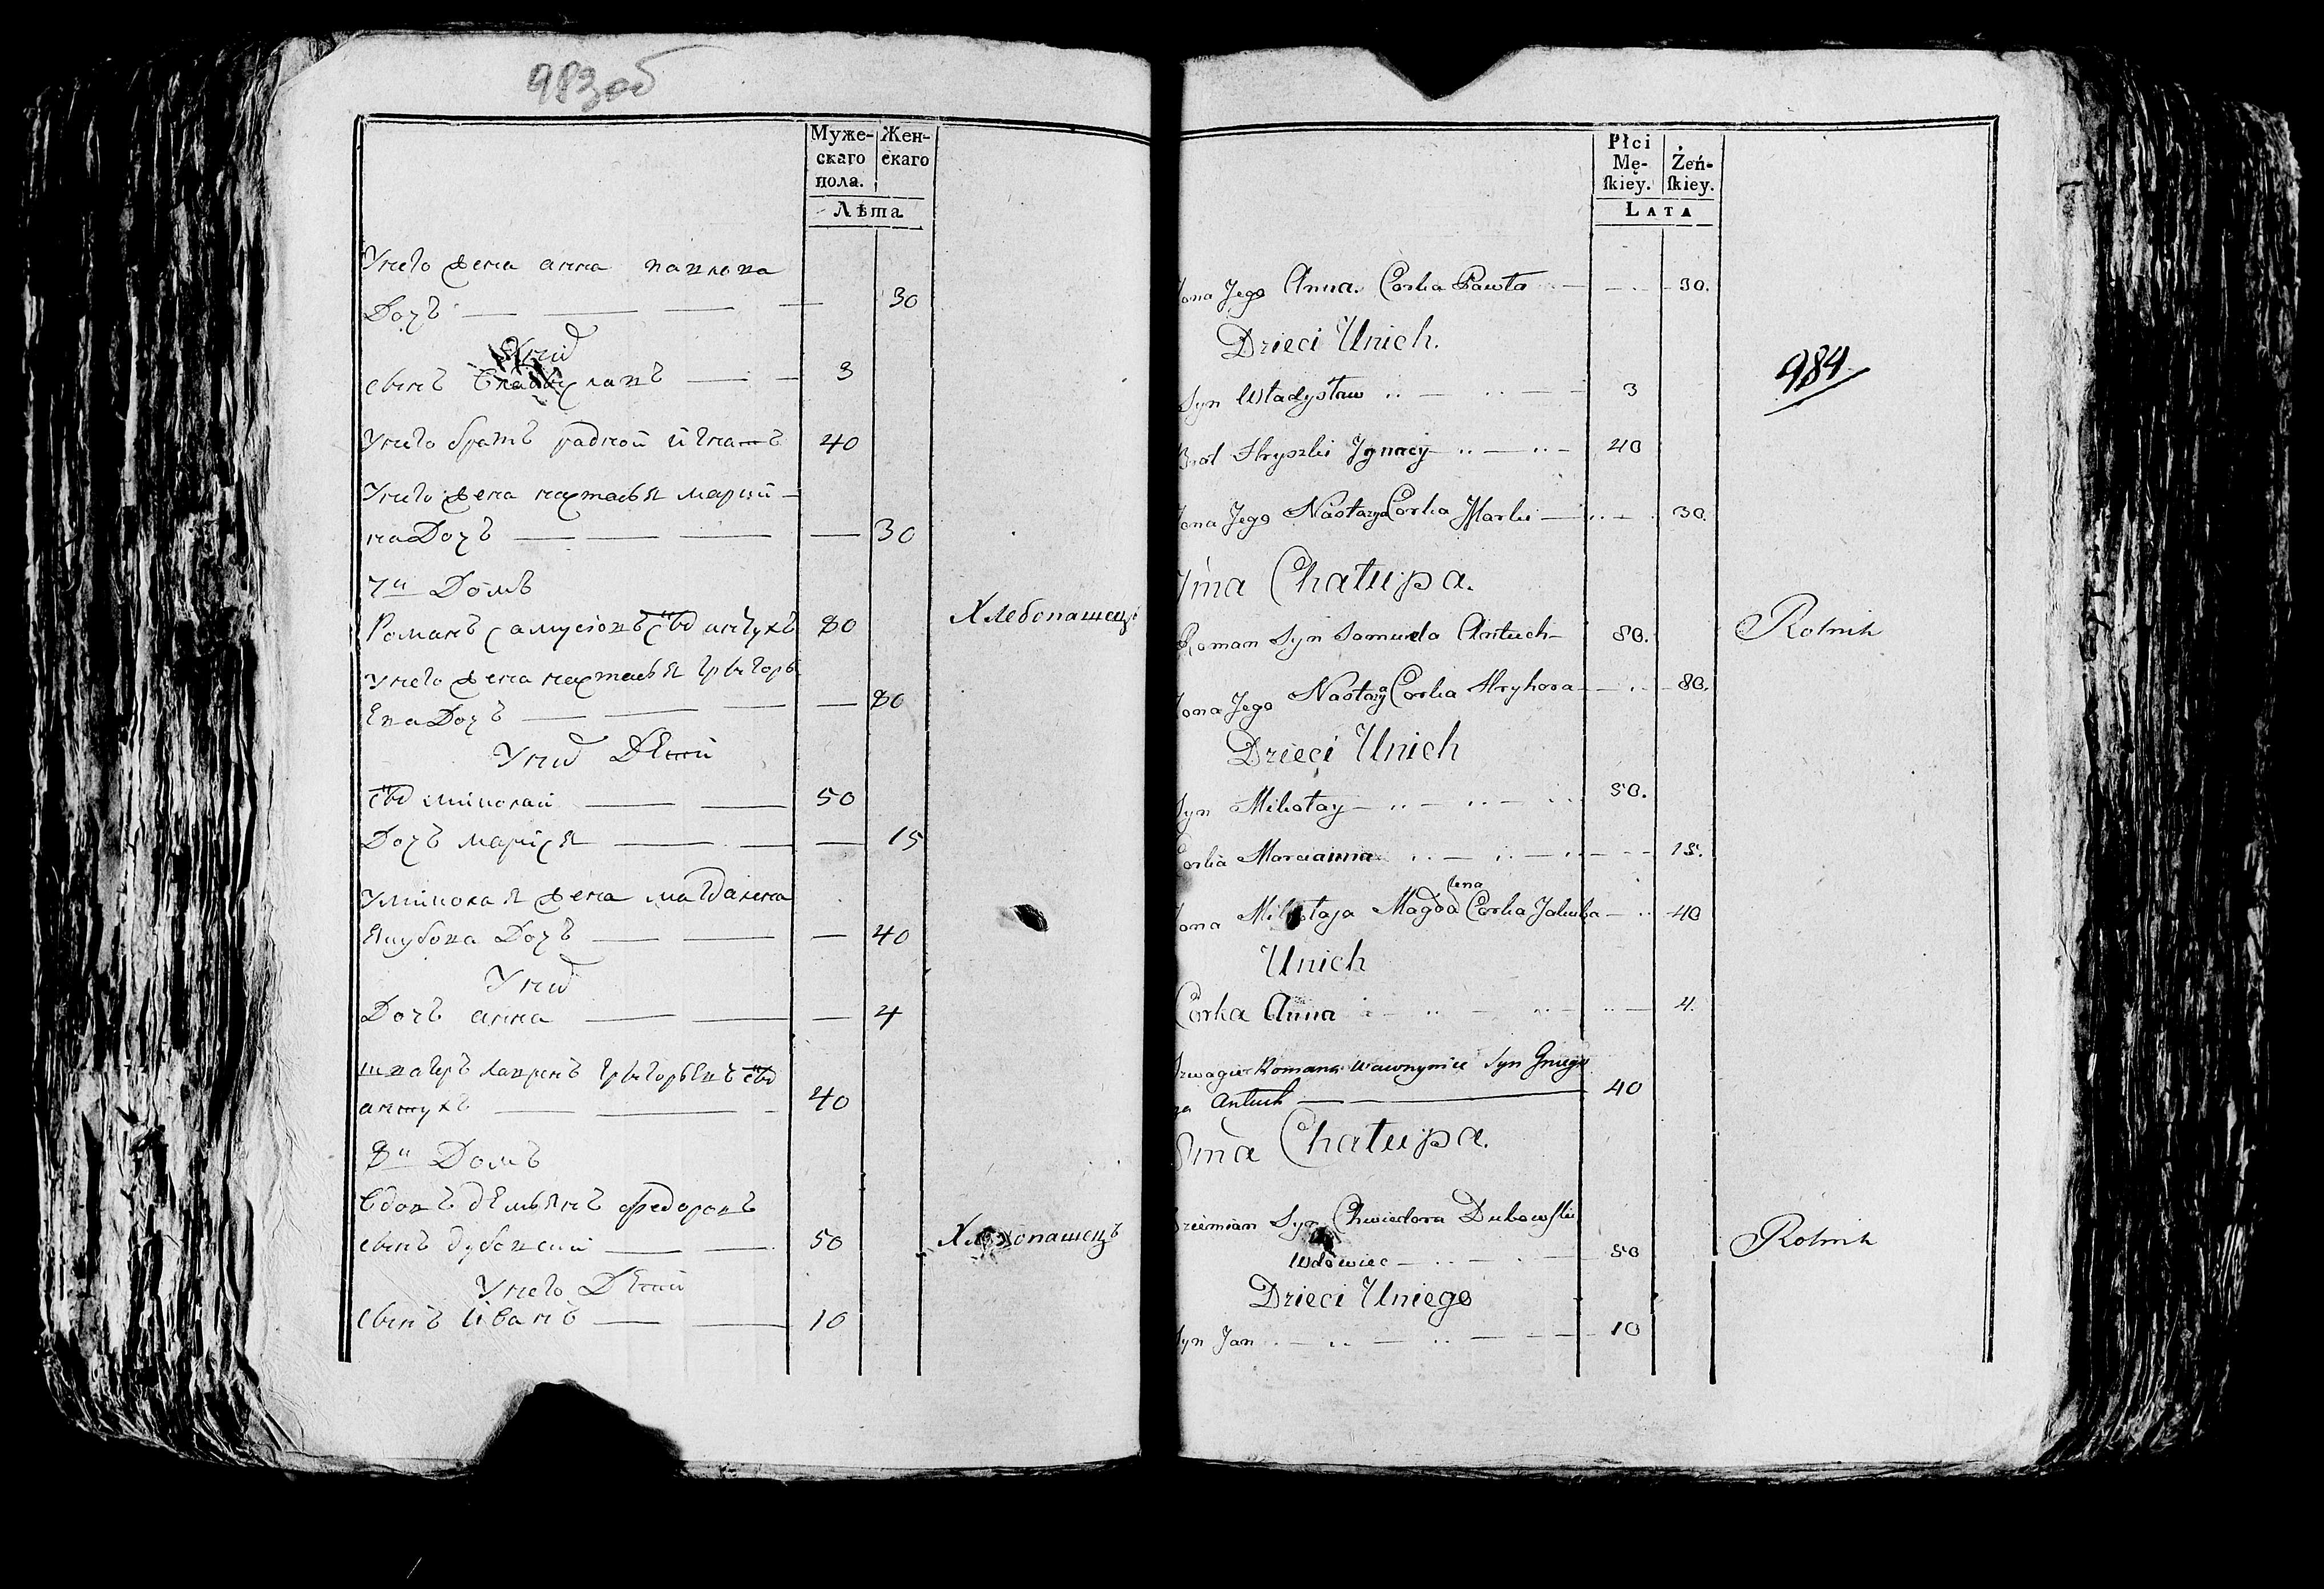 983об
Муже- Жен-
скаго скаго
пола.
Лѣта
Унего жена анна павлова
Дочъ 30
Уних
сынъ Владыславъ 3
Унего братъ радной игнатъ 40
Унего жена настасья марци-
на Дочъ 30
7й Домъ
Романъ самусіовъ сынъ антухъ 80 Хлебопашецъ
Унего жена настасья грыгорь
ева Дочъ 80
Уних Дети
сынъ миколай 50
Дочъ марися 15
Умиколая жена магдалена
якубова Дочъ 40
Уних
Дочъ анна 4
швагеръ лавринъ грыгорьевъ сынъ
антухъ 40
8й Домъ
Вдовъ демьянъ федоровъ
сынъ дубовский 50 Хлебопашецъ
Унего Дети
сынъ иванъ 10
Płci
Mę- Żeń-
ſkiey. ſkiey.
LATA
Żona Jego Anna Corka Pawła 30.
Dzieci Unich.
984
Syn Władysław 3
Brat Hryszki Jgnacy 40
Żona Jego Nastazya Corka Marki 30.
7ma Chałupa.
Roman Syn Samuela Antuch 80. Rolnik
Żona Jego Nastazya Corka Hryhora 80.
Dzieci Unich
Syn Mikołay 50.
Corka Marcianna 15.
Żona Mikołaja Magdalena Corka Jakuba 40
Unich
Corka Anna 4.
Szwagier Romana Wawrzyniec Syn Grzego
rza Antuch 40
8ma Chałupa.
Dziemian Syn Chwiedora Dubowſki
Wdowiec 50 Rolnik
Dzieci Uniego
Syn Jan 10